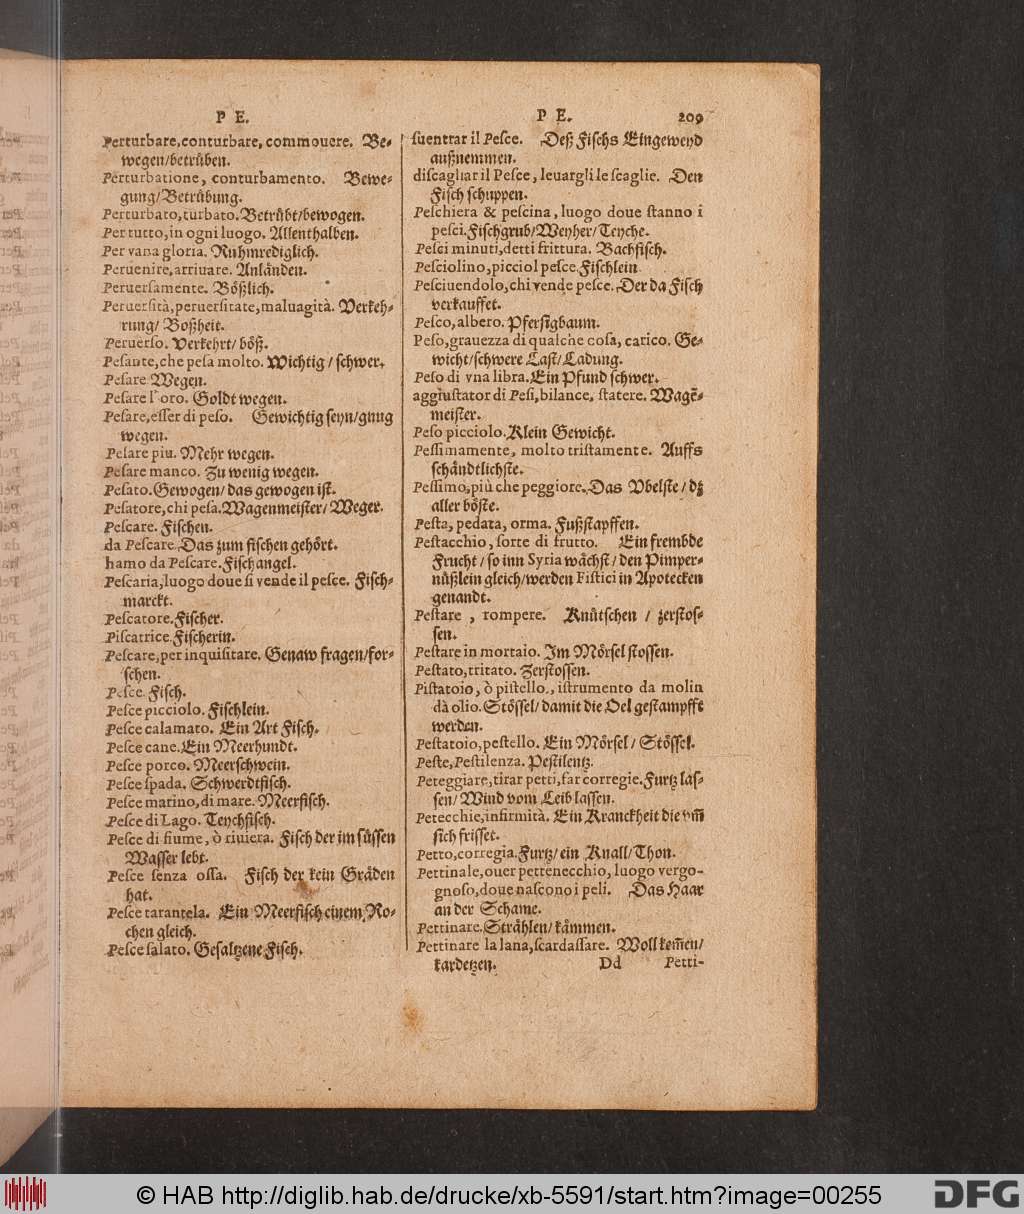 P E.
Perturbare, conturbare, commouere. Be-
wegen/betrüben.
Perturbatione, conturbamento. Bewe-
gung/Betrübung.
Perturbato, turbato. Betrübt/bewogen.
Per tutto, in ogni luogo. Allenthalben.
Per vana gloria. Ruhmrediglich.
Peruenire, arriuare. Anländen.
Peruersamente. Bößlich.
Peruersità, peruersitate, maluagità. Verkeh-
rung/ Boßheit.
Peruerso. Verkehrt/ böß.
Pesante, che pesa molto. Wichtig / schwer.
Pesare Wegen.
Pesare l'oro. Goldt wegen.
Pesare, esser di peso. Gewichtig seyn/gnug
wegen.
Pesare piu. Mehr wegen.
Pesare manco. Zu wenig wegen.
Pesato. Gewogen/ das gewogen ist.
Pesatore, chi pesa. Wagenmeister/ Weger.
Pescare. Fischen.
da Pescare. Das zum fischen gehört.
hamo da Pescare. Fischangel.
Pescaria, luogo doue si vende il pesce. Fisch-
marckt.
Pescatore. Fischer.
Piscatrice. Fischerin.
Pescare, per inquisitare. Genaw fragen/for-
schen.
Pesce. Fisch.
Pesce picciolo. Fischlein.
Pesce calamato. Ein Art Fisch.
Pesce cane. Ein Meerhundt.
Pesce porco. Meerschwein.
Pesce spada. Schwerdtfisch.
Pesce marino, di mare. Meerfisch.
Pesce di Lago. Teychfisch.
Pesce di fiume, ò riuiera. Fisch der im süssen
Wasser lebt.
Pesce senza ossa. Fisch der kein Gräden
hat.
Pesce tarantela. Ein Meerfisch einem Ro-
chen gleich.
Pesce salato. Gesaltzene Fisch.
P E. 209
suentrar il Pesce. Deß Fischs Eingeweyd
außnemmen.
discagliar il Pesce, leuargli le scaglie. Den
Fisch schuppen.
Peschiera & pescina, luogo doue stanno i
pesci. Fischgrub/Weyher/Teyche.
Pesci minuti, detti frittura. Bachfisch.
Pesciolino, picciol pesce. Fischlein
Pesciuendolo, chi vende pesce. Der da Fisch
verkauffet.
Pesco, albero. Pfersigbaum.
Peso, grauezza di qualche cosa, carico. Ge-
wicht/schwere Last/Ladung.
Peso di vna libra. Ein Pfund schwer.
aggiustator di Pesi, bilance, statere. Wagẽ-
meister.
Peso picciolo. Klein Gewicht.
Pessimamente, molto tristamente. Auffs
schändtlichste.
Pessimo, più che peggiore. Das Vbelste / dz
aller böste.
Pesta, pedata, orma. Fußstapffen.
Pestacchio, sorte di frutto. Ein frembde
Frucht / so inn Syria wächst / den Pimper-
nüßlein gleich/werden Fistici in Apotecken
genandt.
Pestare, rompere. Knütschen / zerstos-
sen.
Pestare in mortaio. Im Mörsel stossen.
Pestato, tritato. Zerstossen.
Pistatoio, ò pistello, istrumento da molin
dà olio. Stössel/ damit die Oel gestampfft
werden.
Pestatoio, pestello. Ein Mörsel / Stössel.
Peste, Pestilenza. Pestilentz.
Peteggiare, tirar petti, far corregie. Furtz las-
sen/ Wind vom Leib lassen.
Petecchie, infirmità. Ein Kranckheit die vm̃
sich frisset.
Petto, corregia. Furtz/ ein Knall/Thon.
Pettinale, ouer pettenecchio, luogo vergo-
gnoso, doue nascono i peli. Das Haar
an der Schame.
Pettinare. Strählen/ kämmen.
Pettinare la lana, scardassare. Woll kem̃en/
kardetzen. Dd Petti-
© HAB http://diglib.hab.de/drucke/xb-5591/start.htm?image=00255
DFG